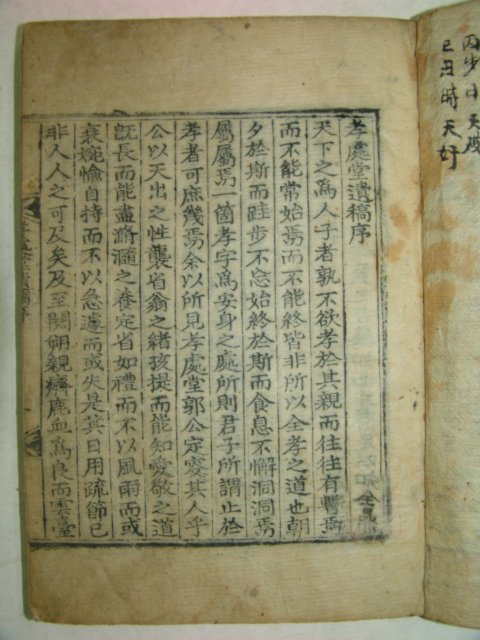 丙
己丑時天好
孝處堂遺稿序
天下之爲人子者孰不欲孝於其親而往往有暫焉
而不能常始焉而不能終皆非所以全孝之道也朝
夕於斯而跬步不忘始終於斯而食息不懈洞洞焉
屬屬焉一箇孝字爲安身之處所則君子所謂止於
孝者可庶幾焉余以所見孝處堂郭公定變其人乎
公以天出之性襲省翁之緖孩提而能知愛敬之道
旣長而能盡滫瀡之養定省如禮而不以風雨而或
衰婉愉自持而不以急遽而或失是其日用疏節已
非人人之可及矣及至闕朔親癠鹿血爲良而雲臺